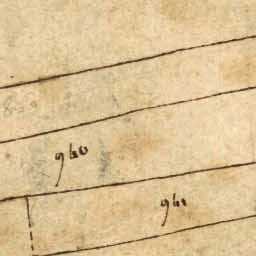 960
961